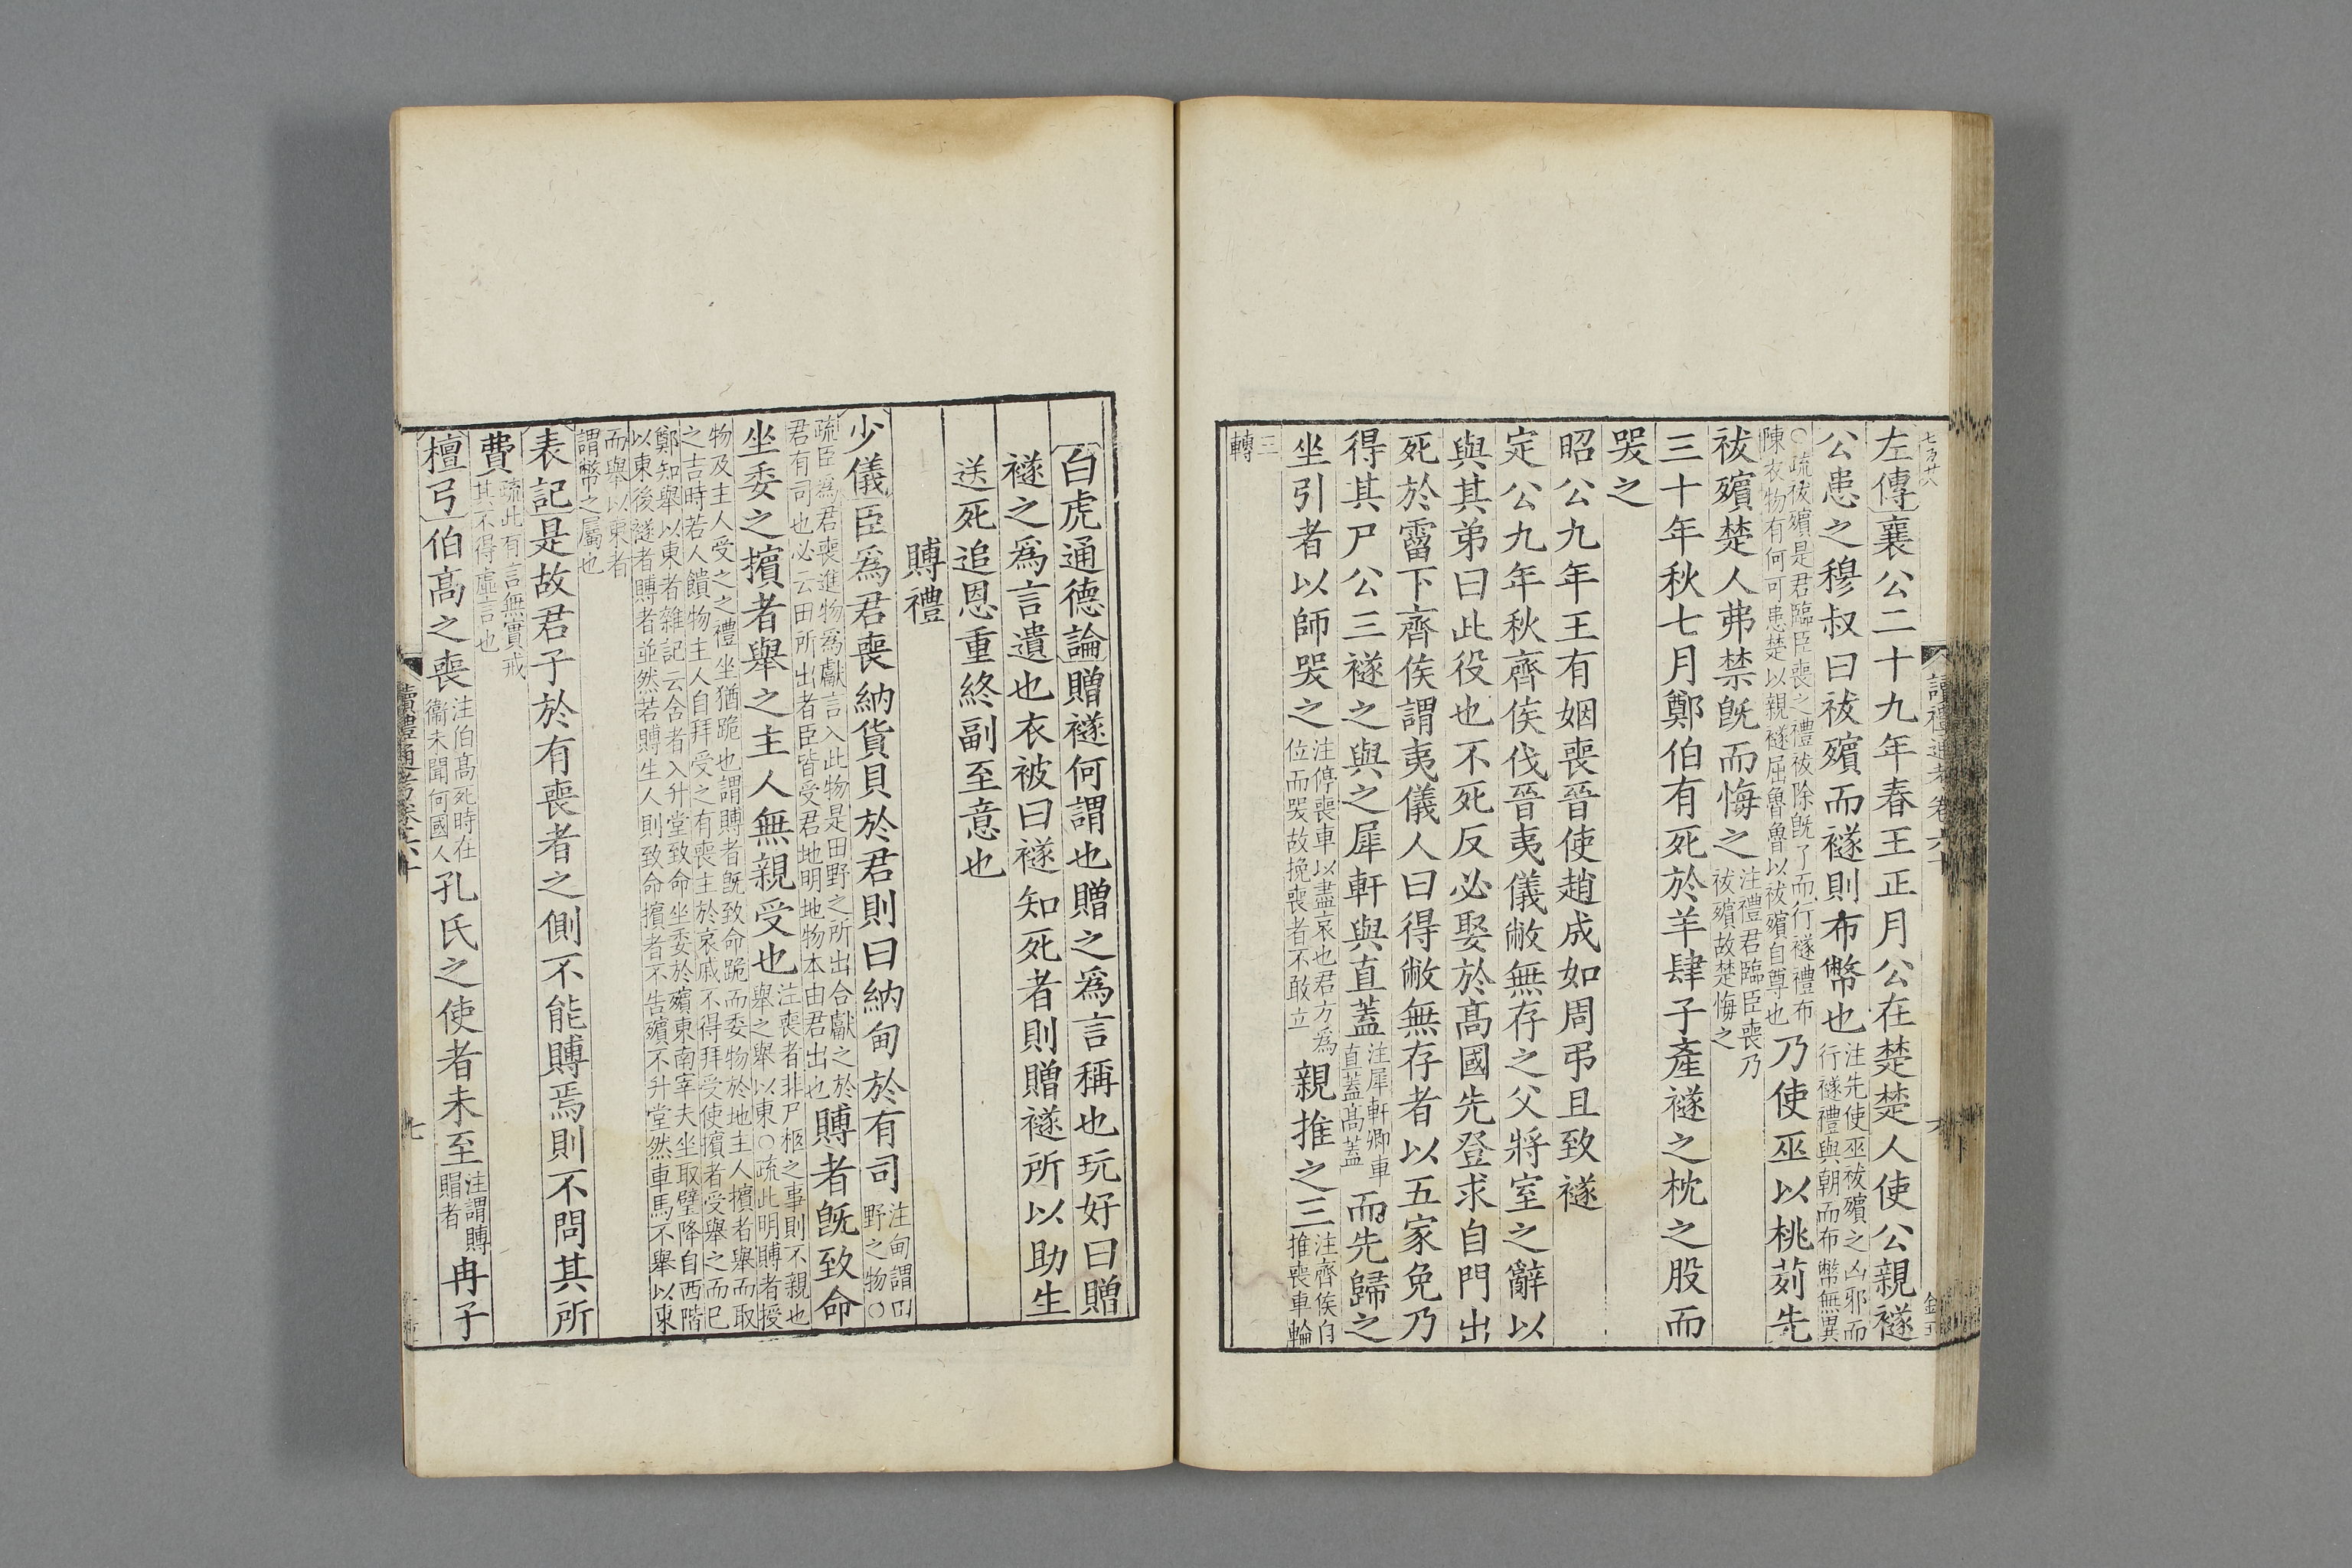 左傳襄公二十九年春王正月公在楚楚人使公親襚
公患之穆叔曰祓殯而襚則布幣也注先使巫祓殯之凶邪而行襚禮與朝而布幣無異
○疏祓殯是君臨臣喪之禮祓除旣了而行襚禮布陳衣物有何可患楚以親襚屈魯魯以祓殯自尊也乃使巫以桃茢先
祓殯楚人弗禁旣而悔之注禮君臨臣喪乃祓殯故楚悔之
三十年秋七月鄭伯有死於羊肆子產襚之枕之股而
哭之
昭公九年王有姻喪晉使趙成如周弔且致襚
定公九年秋齊侯伐晉夷儀敝無存之父將室之辭以
與其弟曰此役也不死反必娶於高國先登求自門出
死於霤下齊侯謂夷儀人曰得敝無存者以五家免乃
得其尸公三襚之與之犀軒與直蓋注犀軒卿車直蓋高蓋而先歸之
坐引者以師哭之注停喪車以盡哀也君方為位而哭故挽喪者不敢立親推之三注齊侯自推喪車輪
三轉
白虎通德論贈襚何謂也贈之爲言稱也玩好曰贈
襚之爲言遺也衣被曰襚知死者則贈襚所以助生
送死追恩重終副至意也
賻禮
少儀臣爲君喪納貨貝於君則曰納甸於有司注甸謂田野之物○
疏臣爲君喪進物爲獻言入此物是田野之所出合獻之於君有司也必云田所出者臣皆受君地明地物本由君出也賻者旣致命
坐委之擯者舉之主人無親受也注喪者非尸柩之事則不親也舉之舉以東○疏此明賻者授
物及主人受之之禮坐猶跪也謂賻者旣致命跪而委物於地主人擯者舉而取之吉時若人饋物主人自拜受之有喪主於哀戚不得拜受使擯者受舉之而已
鄭知舉以東者雜記云含者入升堂致命坐委於殯東南宰夫坐取璧降自西階以東後襚者賻者並然若賻生人則致命擯者不告殯不升堂然車馬不舉以東
而舉以東者謂幣之屬也
表記是故君子於有喪者之側不能賻焉則不問其所
費疏此有言無實戒其不得虛言也
檀弓伯高之喪注伯高死時在衞未聞何國人孔氏之使者未至注謂賻賵者冉子